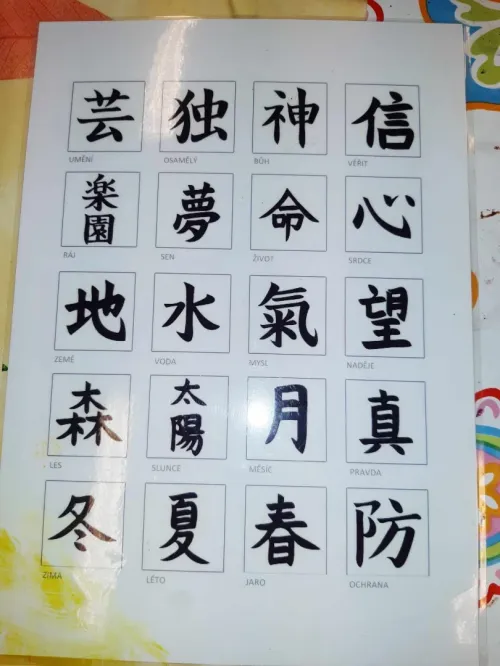 芸 独 神 信
UMĚNÍ OSAMĚLÝ BŮH VĚŘIT
楽園 夢 命 心
RÁJ SEN ŽIVOT SRDCE
地 水 氣 望
ZEMĚ VODA MYSL NADĚJE
森 太陽 月 真
LES SLUNCE MĚSÍC PRAVDA
冬 夏 春 防
ZIMA LÉTO JARO OCHRANA